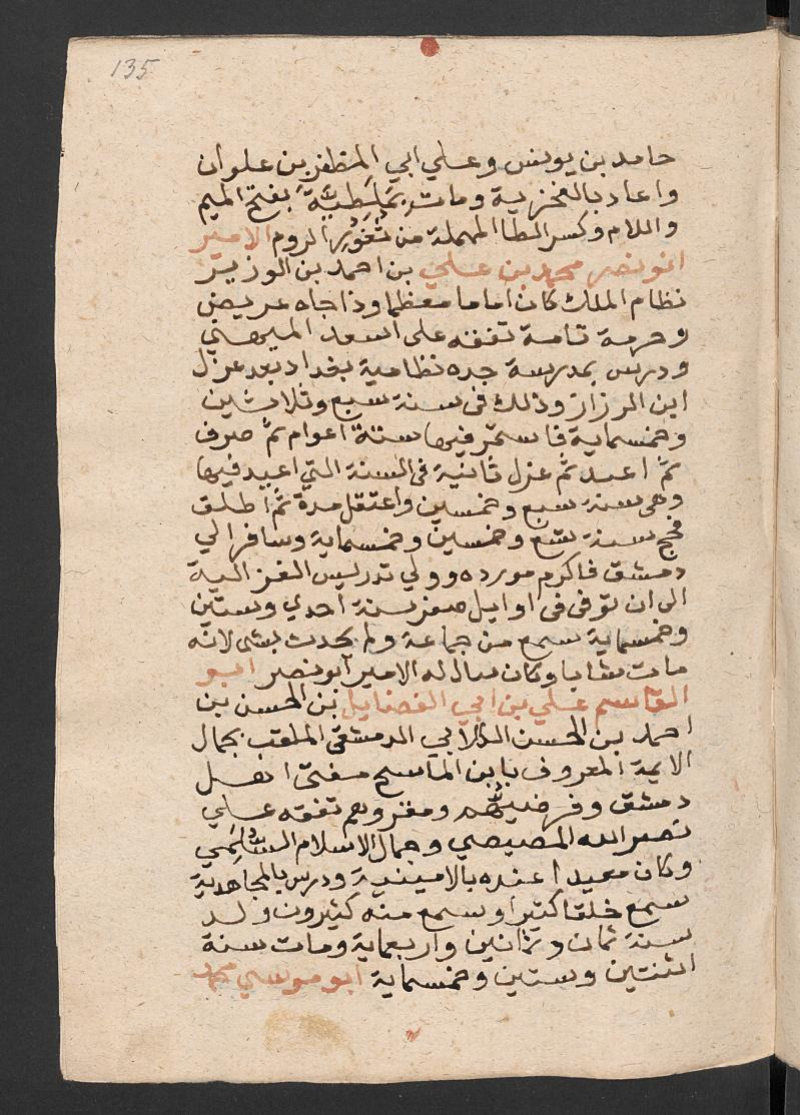 135
حامد بن يونس وعلي ابي المظفر بن علوان
واعاد بالفخزية ومات بمَلَطِيَّةَ بفتح الميم
واللام وكسر الطا المهملة من ثغور الروم الامير
ابو نصر محمد بن علي بن احمد بن الوزير
نظام الملك كان اماما معظما وذا جاه عريض
وحرمة تامة تفقه على اسعد الميهني
ودرس بمدرسة جده نظامية بغداد بعد عزل
ابن الرزاز وذلك فى سنة سبع وثلاثين
وخمسماية فاستمر فيها ستة اعوام ثم صرف
ثم اعيد ثم عزل ثانية فى السنة التي اعيد فيها
وهى سنة سبع وخمسين واعتقل مدة ثم اطلق
فحج سنة تسع وخمسين وخمسماية وسافر الي
دمشق فاكرم مورده وولي تدريس الغزالية
الى ان توفى فى اوايل صفر سنة احدي وستين
وخمسماية سمع من جماعة ولم يحدث بشى لانه
مات شابا وكان يقال له الامير ابو نصر ابو
القاسم علي بن ابي الفضايل بن الحسن بن
احمد بن الحسن الكلابي الدمشقى الملقب بجمال
الايمة المعروف بابن الماسح مفتى اهل
دمشق وفرضيهم ومقروهم تفقه علي
نصر الله المصيصي وجمال الاسلام السُّلَمي
وكان معيدا عنده بالامينية ودرس بالمجاهدية
سمع خلقا كثيرا وسمع منه كثيرون ولد
سنة ثمان وثمانين واربعماية ومات سنة
اثنتين وستين وخمسماية ابو موسي محمد